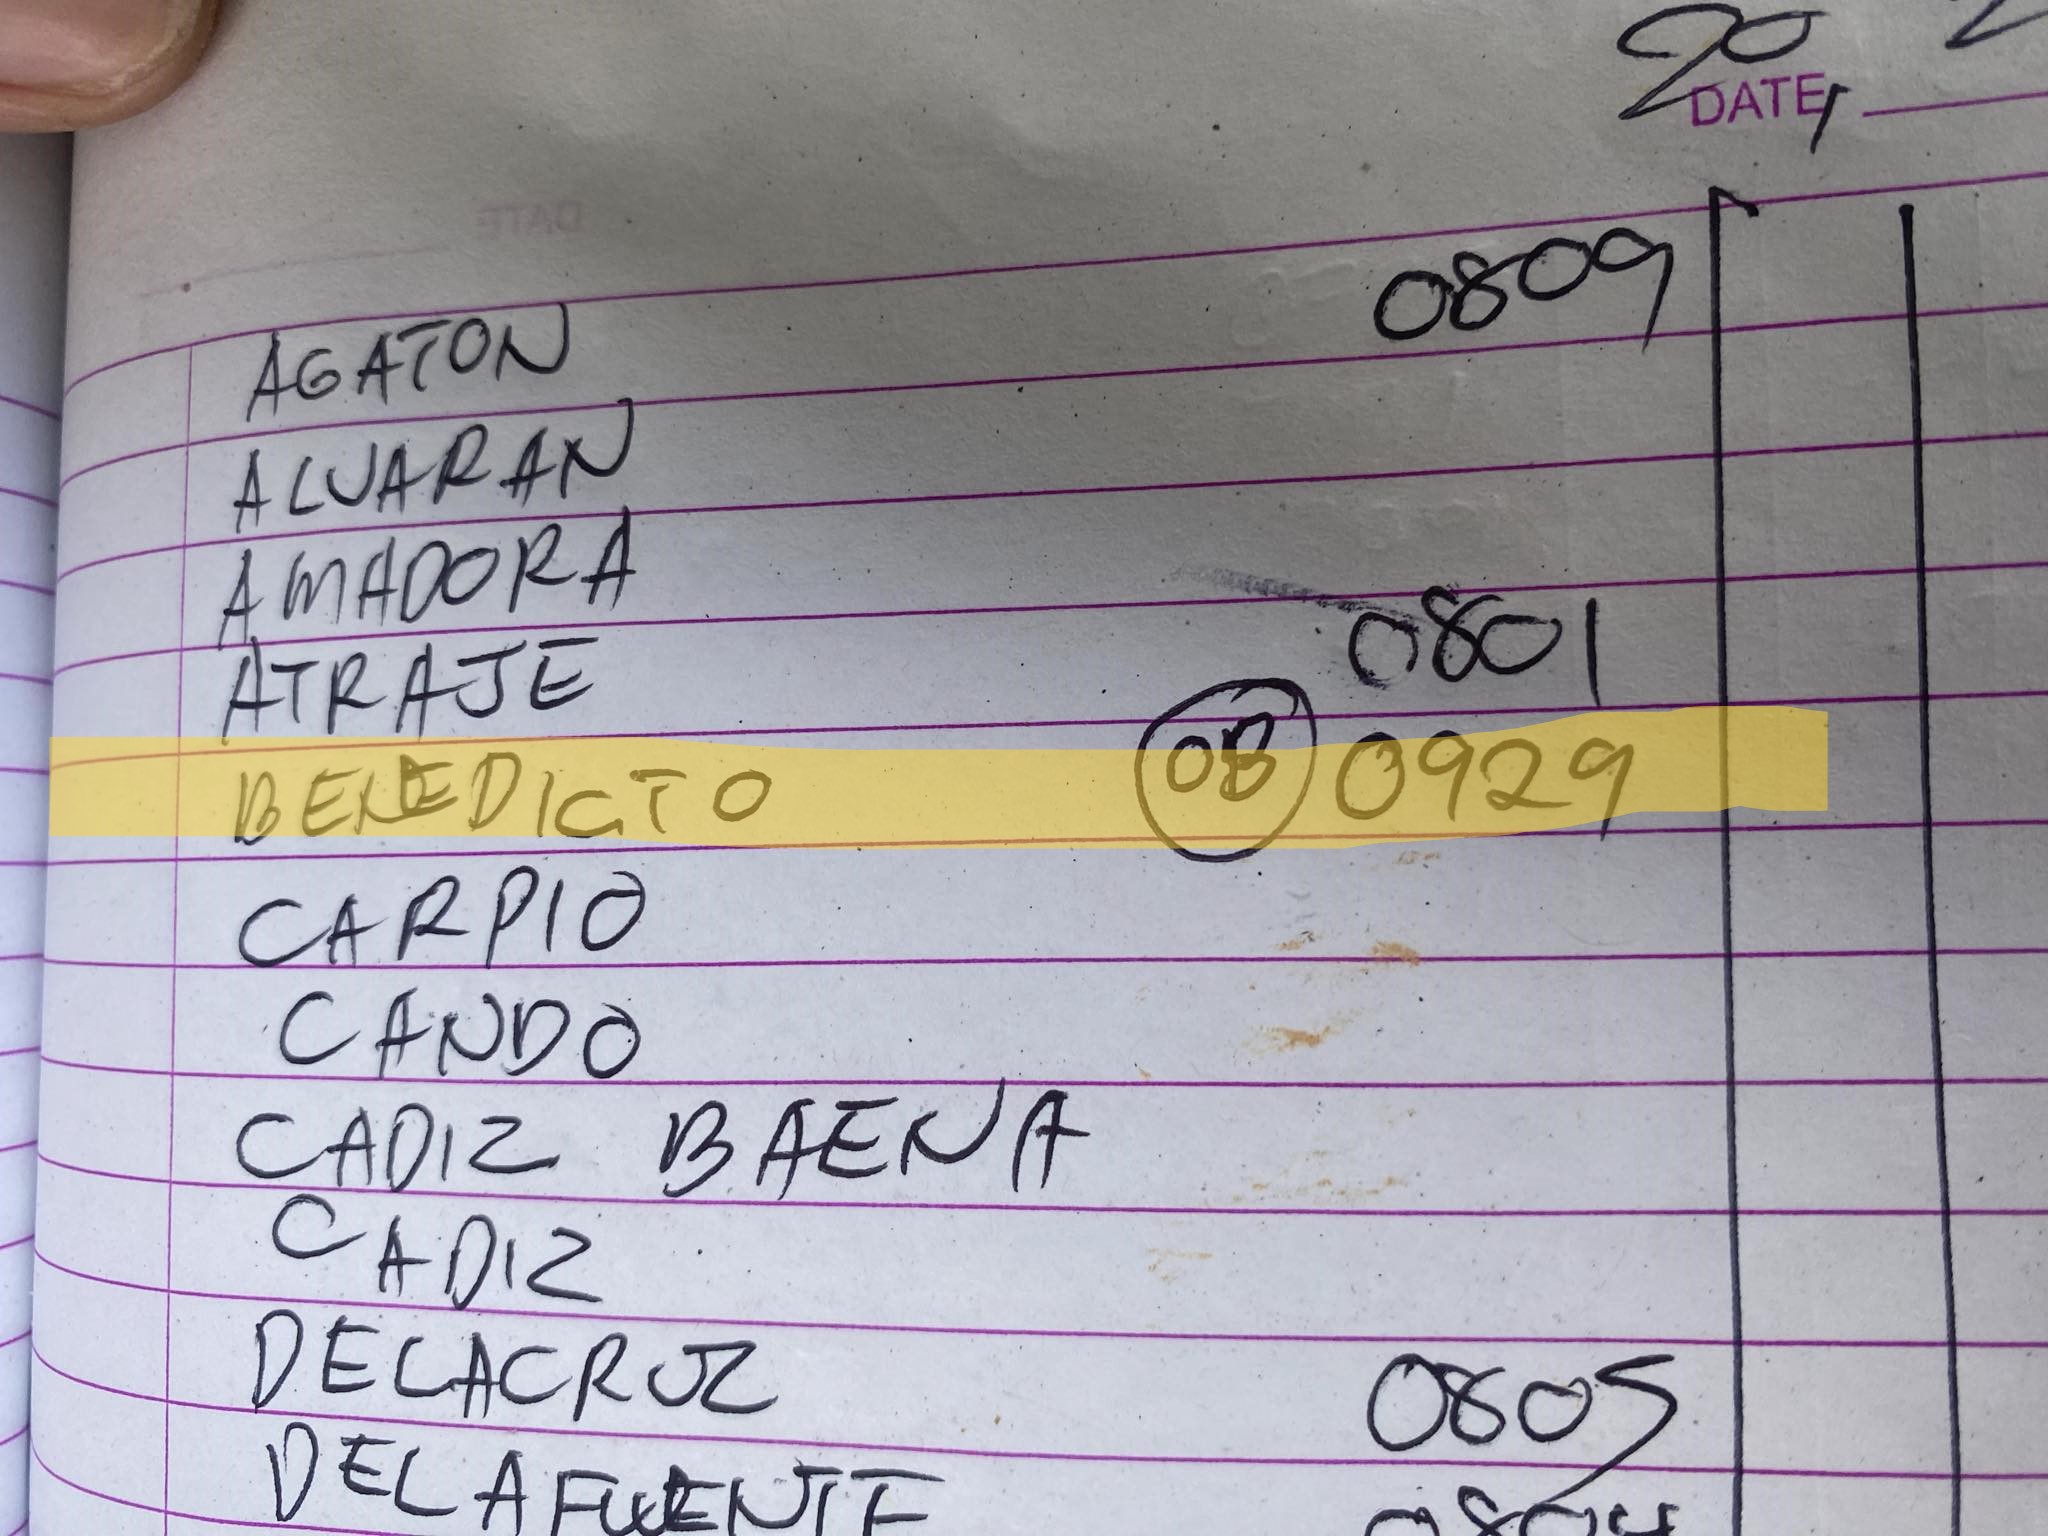 20, 2
DATE
AGATON 0809
ALVARAN
AMADORA
ATRAJE 0801
BENEDICTO OB 0929
CARPIO
CANDO
CADIZ BAENA
CADIZ
DELACRUZ 0805
DELAFUENTE